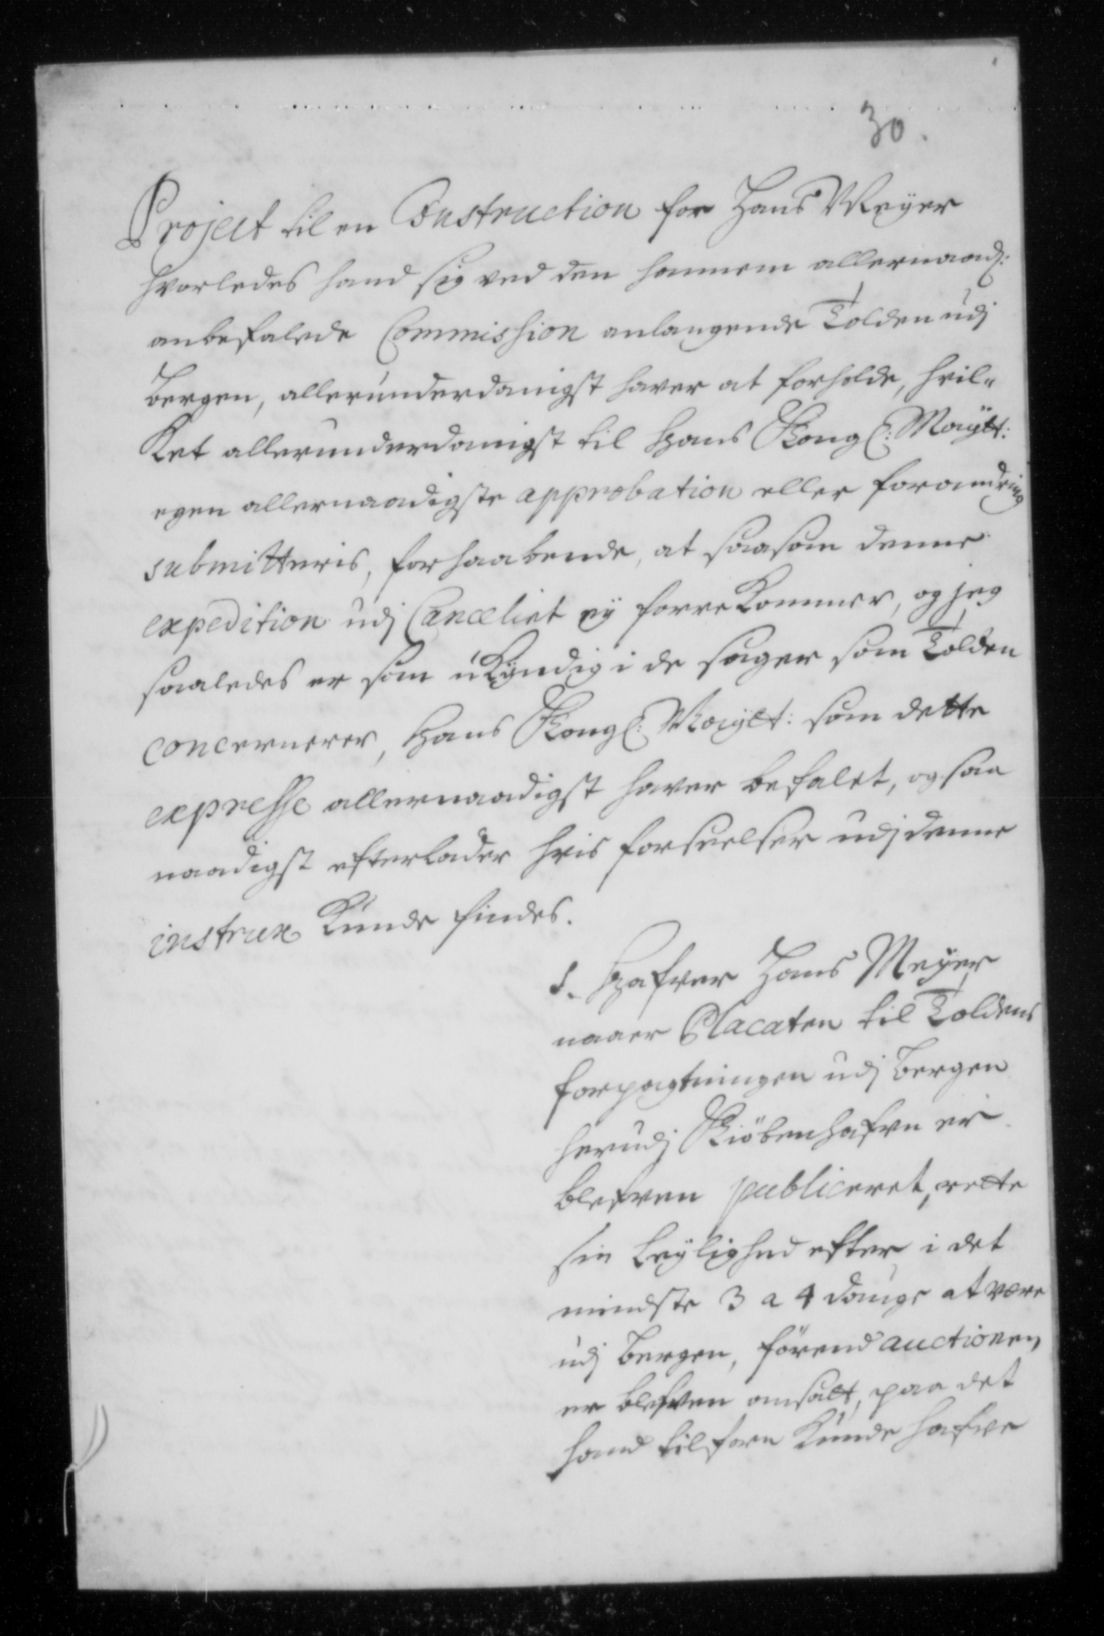 30.
Project til en Instruction for Hans Meyer
hvorledes hand sig ved den hannem allernaad:
anbefalede Commission anlangende Tolden udj
Bergen, allerunderdanigst haver at forholde, hvil-
Ket allerunderdanigst til Hans Kongl: Maytt:
egen allernaadigste approbation eller forandring
submitteris, forhaabende, at saasom denne
expedition udj Cancelliet ey forre Kommer, og jeg
saaledes er som uKyndig i de sager som Tolden
concernerer, Hans Kongl: Maytt: som dette
expresse allernaadigst haver befalet, og saa
naadigst efterlader hvis forseelser udj denne
instrux Kunde findes.
1. Hafver Hans Meyer
naaer Placaten til Toldens
forpagtningen udj Bergen
herudj Kiöbenhafvn er
blefven publiceret, rette
sin leylighed efter i det
mindste 3 a 4 dauge at være
udj Bergen, förend auctionen
er blefven ansatt, paa det
hand tilforn Kunde hafve